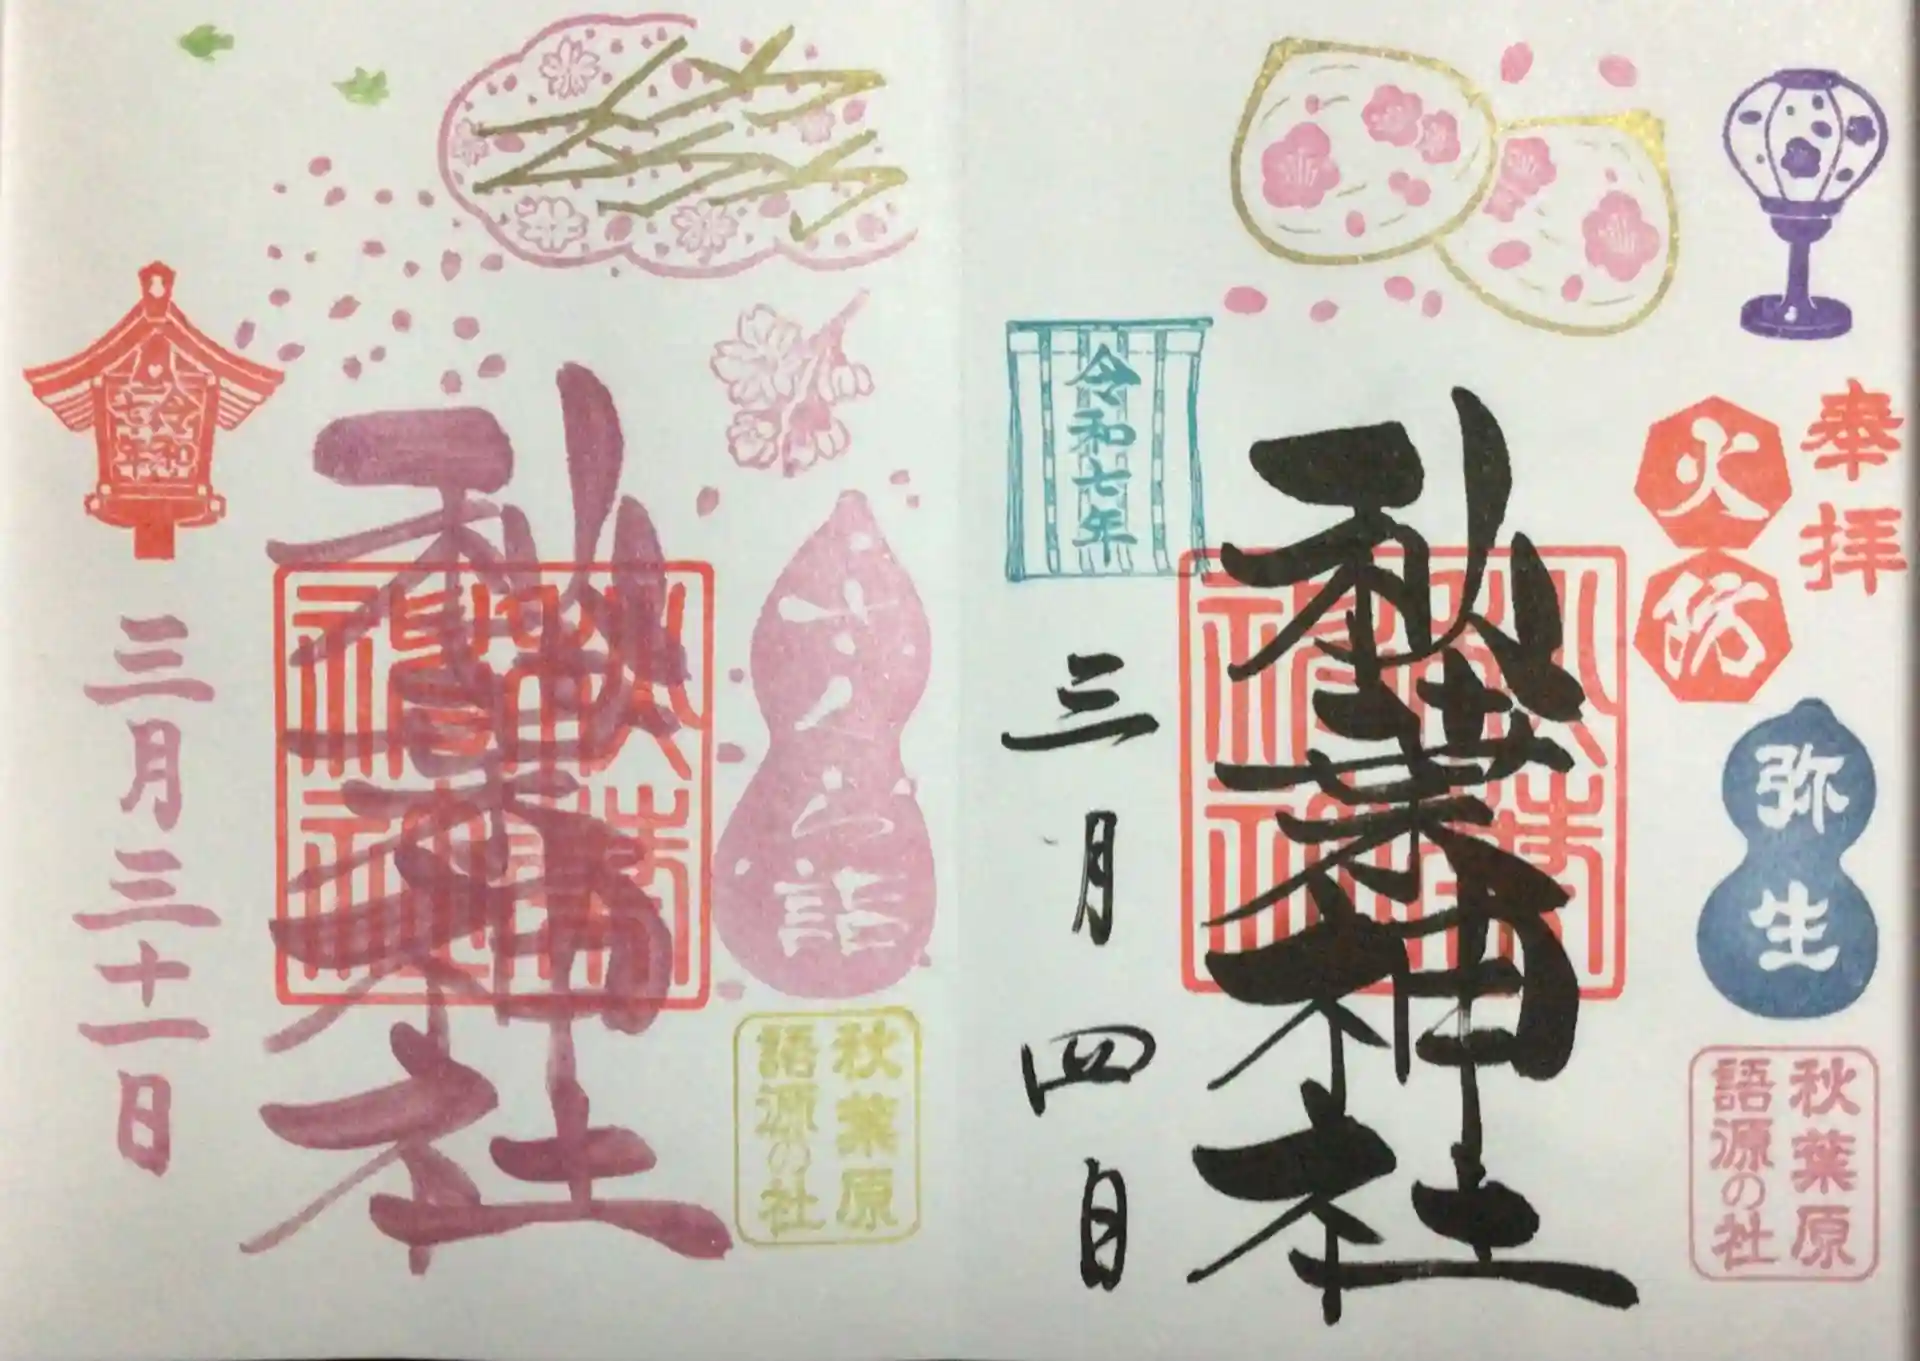 奉拝
火防
弥生
秋葉原
語源の社
秋葉神社
令和七年
三月四日
詣
秋葉原
語源の社
秋葉神社
令和
七年
三月三十一日